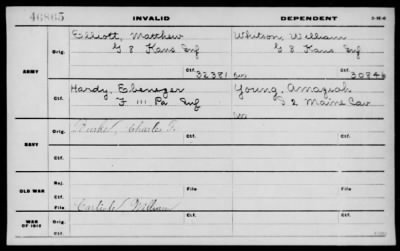 46865
INVALID
DEPENDENT
3-15-6
Elliott, Matthew
Whitson, William
Orig.
G 8 Kans Inf
G 8 Kans Inf
ARMY
Ctf. 32381
Ctf. 30846
Hardy, Ebenezer
Young, Amaziah
F 111 Pa Inf
2 Maine Cav
Ctf.
Charles F.
Orig.
NAVY
Ctf.
Ctf.
Rej.
OLD WAR
Ctf.
File
File
Carlisle William
Orig.
WAR OF 1812
Ctf.
Ctf.